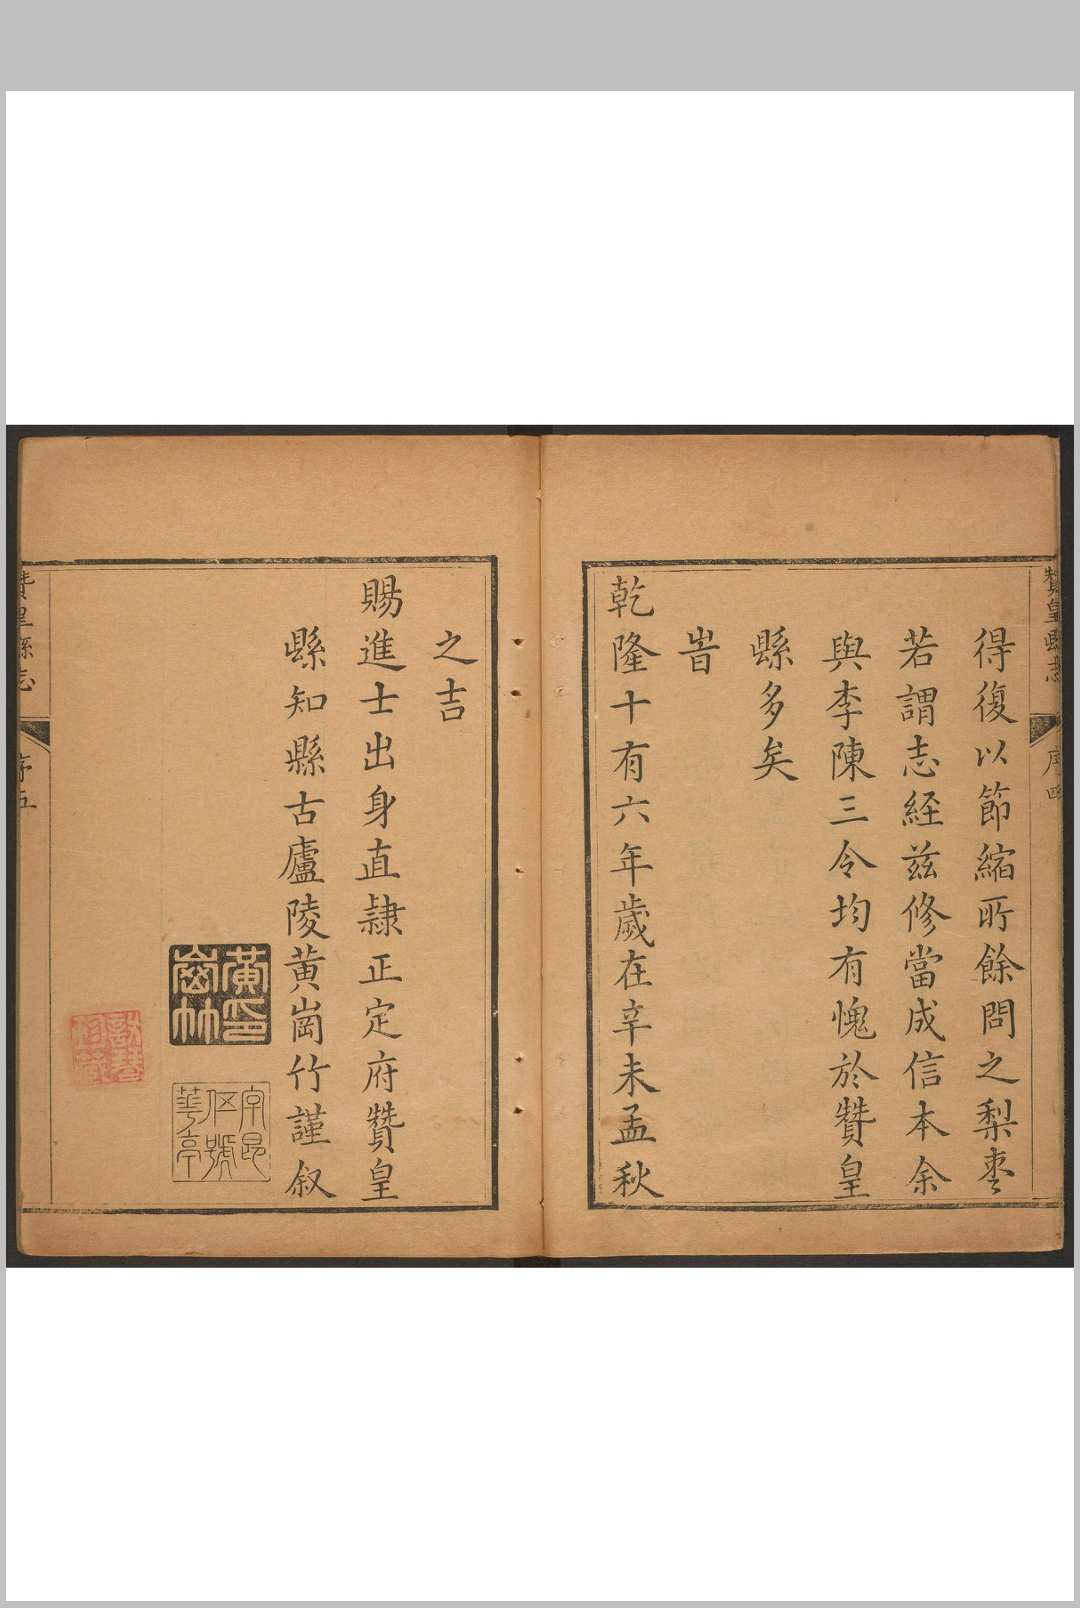 贊皇縣志
序四
得復以節縮所餘問之梨棗
若謂志経兹修當成信本余
與李陳三令均有愧於贊皇
縣多矣
旹
乾隆十有六年歲在辛未孟秋
之吉
賜進士出身直隷正定府贊皇
縣知縣古廬陵黄崗竹謹叙
黄印
崗竹
字昆
伍號
華亭
贊皇縣志
序五